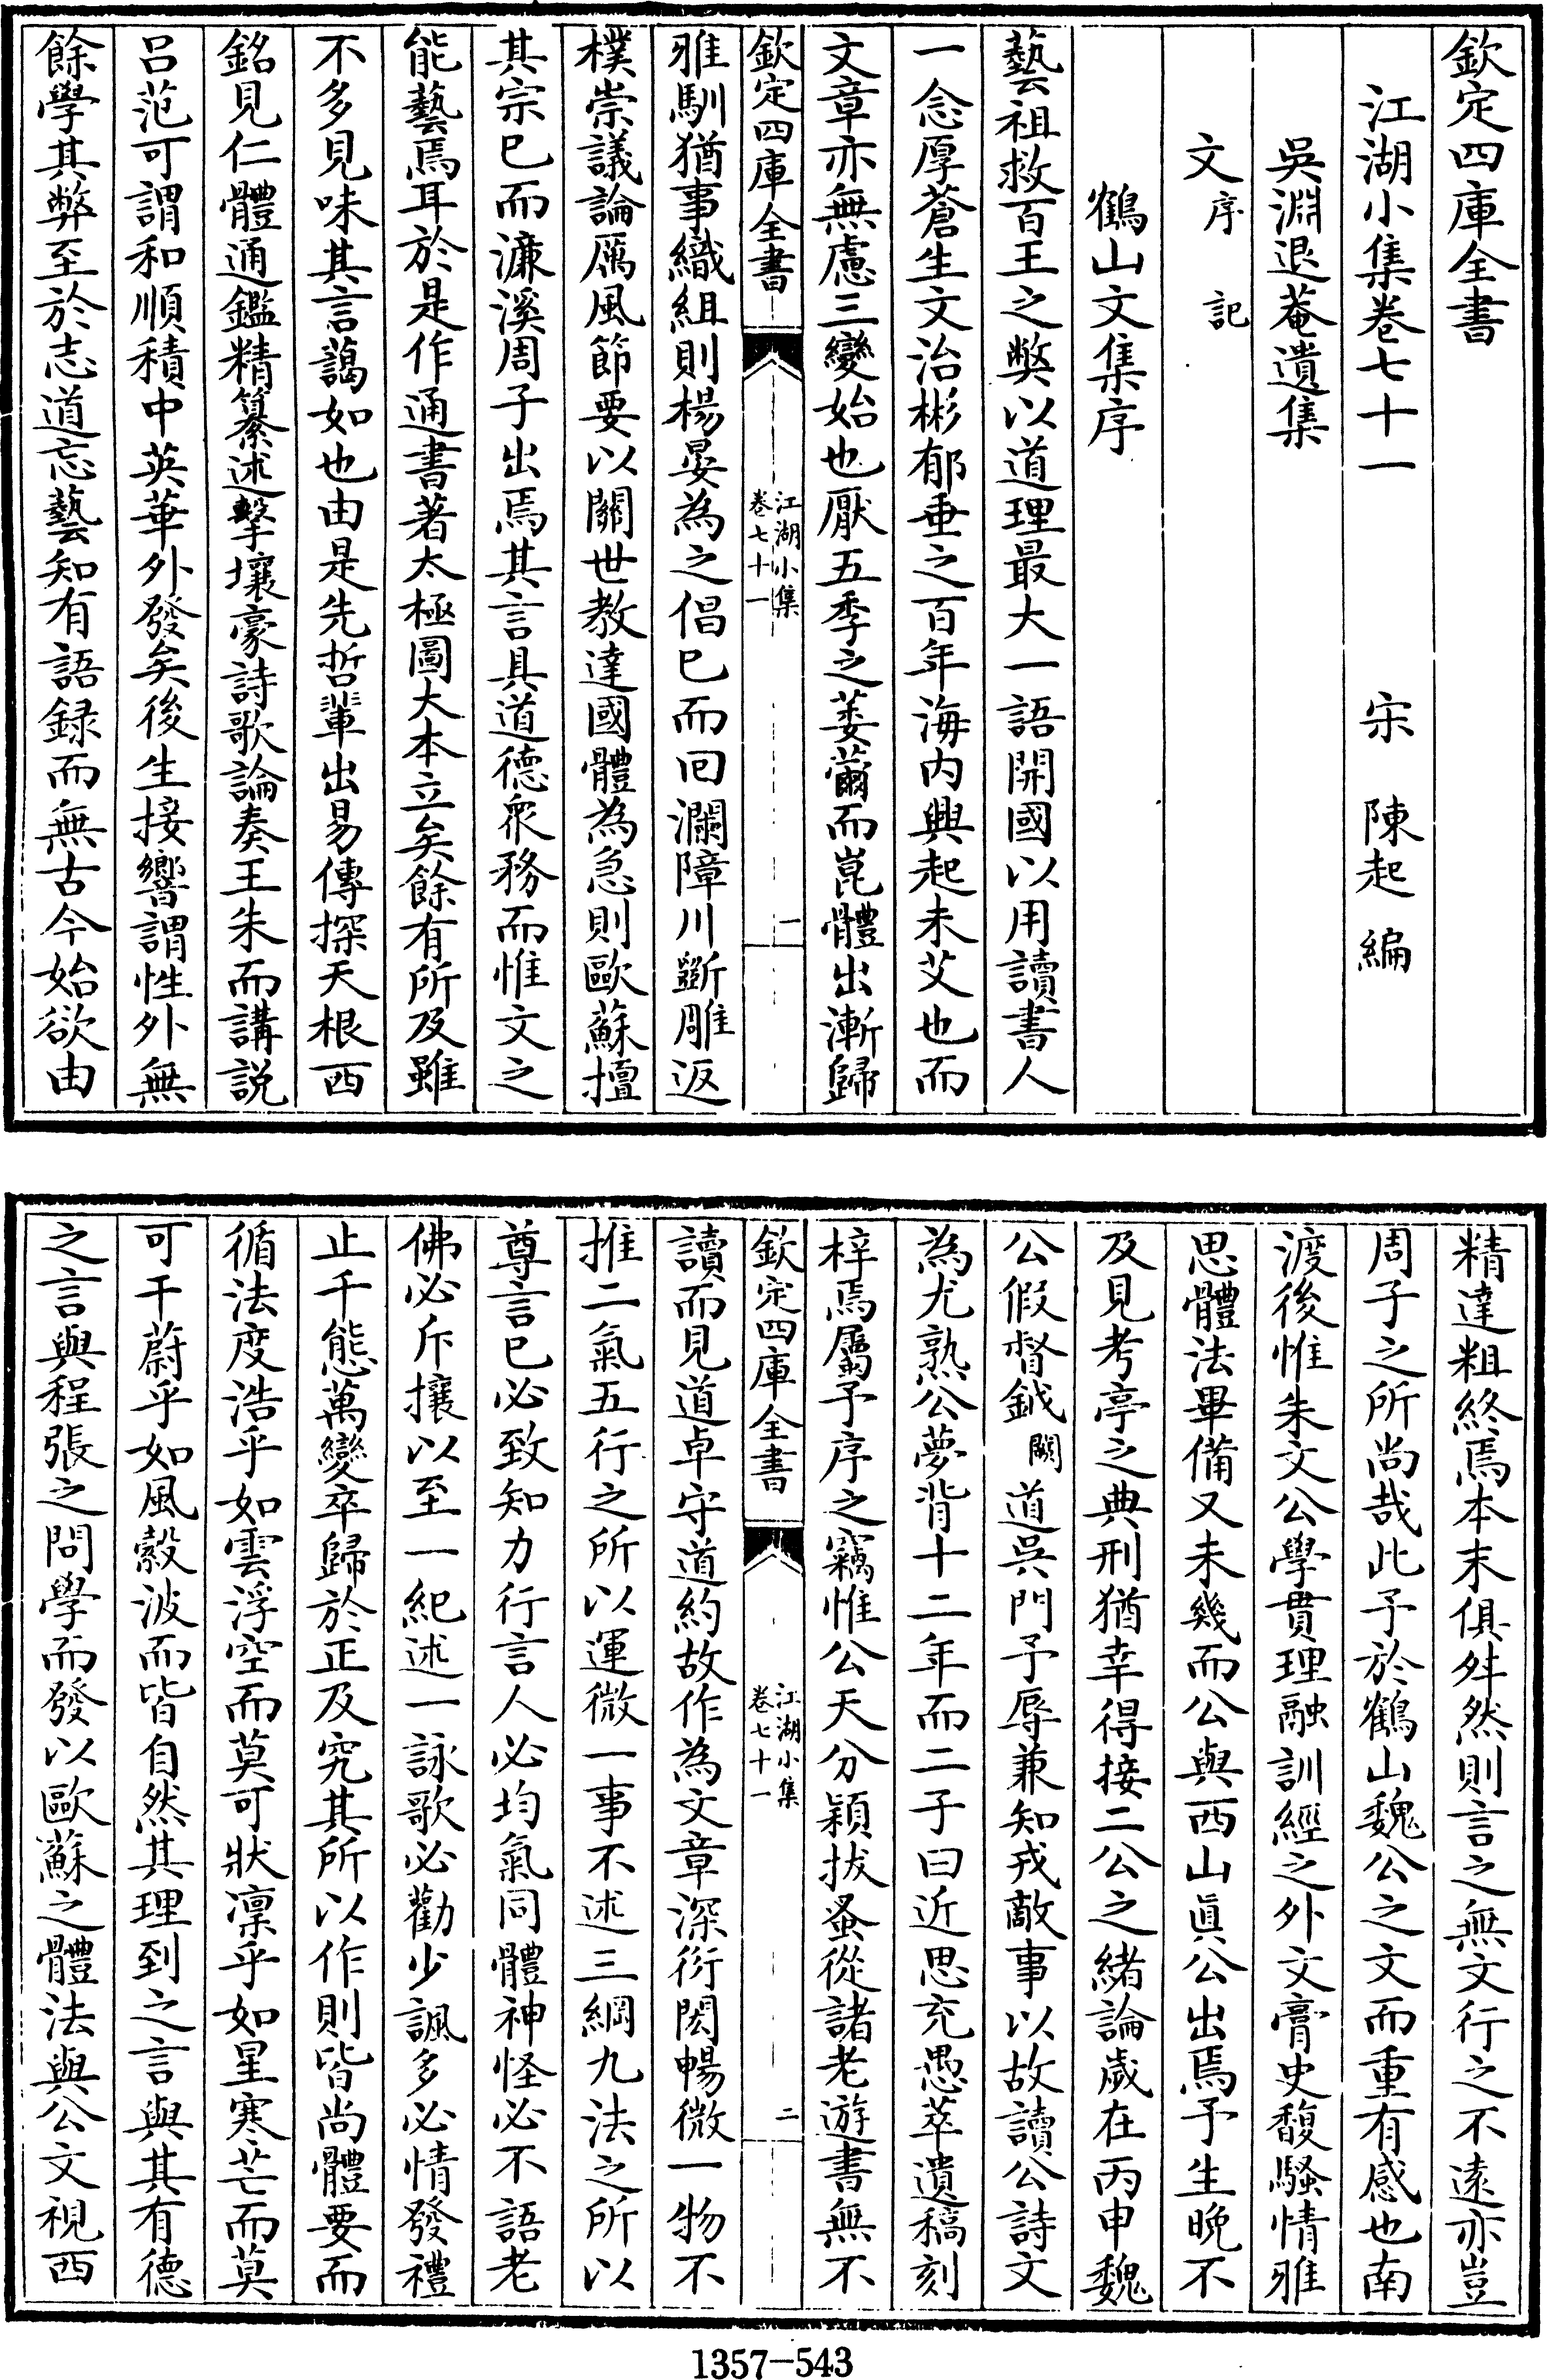 欽定四庫全書
江湖小集卷七十一　宋　陳起　編
吳淵退菴遺集
文序　記
鶴山文集序
藝祖救百王之弊以道理最大一語開國以用讀書人
一念厚蒼生文治彬郁垂之百年海内興起未艾也而
文章亦無慮三變始也厭五季之萎薾而崑體出漸歸
欽定四庫全書
江湖小集
卷七十一
一
雅馴猶事織組則楊晏為之倡已而回瀾障川斵雕返
樸崇議論厲風節要以關世教達國體為急則歐蘇擅
其宗已而濂溪周子出焉其言具道德衆務而惟文之
能藝焉耳於是作通書著太極圖大本立矣餘有所及雖
不多見味其言藹如也由是先哲輩出易傳探天根西
銘見仁體通鑑精纂述擊壤豪詩歌論奏王朱而講説
呂范可謂和順積中英華外發矣後生接響謂性外無
餘學其弊至於志道忘藝知有語録而無古今始欲由
精達粗終焉本末俱舛然則言之無文行之不遠亦豈
周子之所尚哉此予於鶴山魏公之文而重有感也南
渡後惟朱文公學貫理融訓經之外文膏史馥騷情雅
思體法畢備又未幾而公與西山眞公出焉予生晚不
及見考亭之典刑猶幸得接二公之緒論歲在丙申魏
公假督鉞闕道吳門予辱兼知戎敵事以故讀公詩文
為尤熟公夢背十二年而二子曰近思克愚萃遺稿刻
梓焉屬予序之竊惟公天分穎拔蚤從諸老遊書無不
欽定四庫全書
江湖小集
卷七十一
二
讀而見道卓守道約故作為文章深衍閎暢微一物不
推二氣五行之所以運微一事不述三綱九法之所以
尊言已必致知力行言人必均氣同體神怪必不語老
佛必斥攘以至一紀述一詠歌必勸少諷多必情發禮
止千態萬變卒歸於正及究其所以作則皆尚體要而
循法度浩乎如雲浮空而莫可狀凜乎如星寒芒而莫
可干蔚乎如風縠波而皆自然其理到之言與其有德
之言與程張之問學而發以歐蘇之體法與公文視西
1357-543